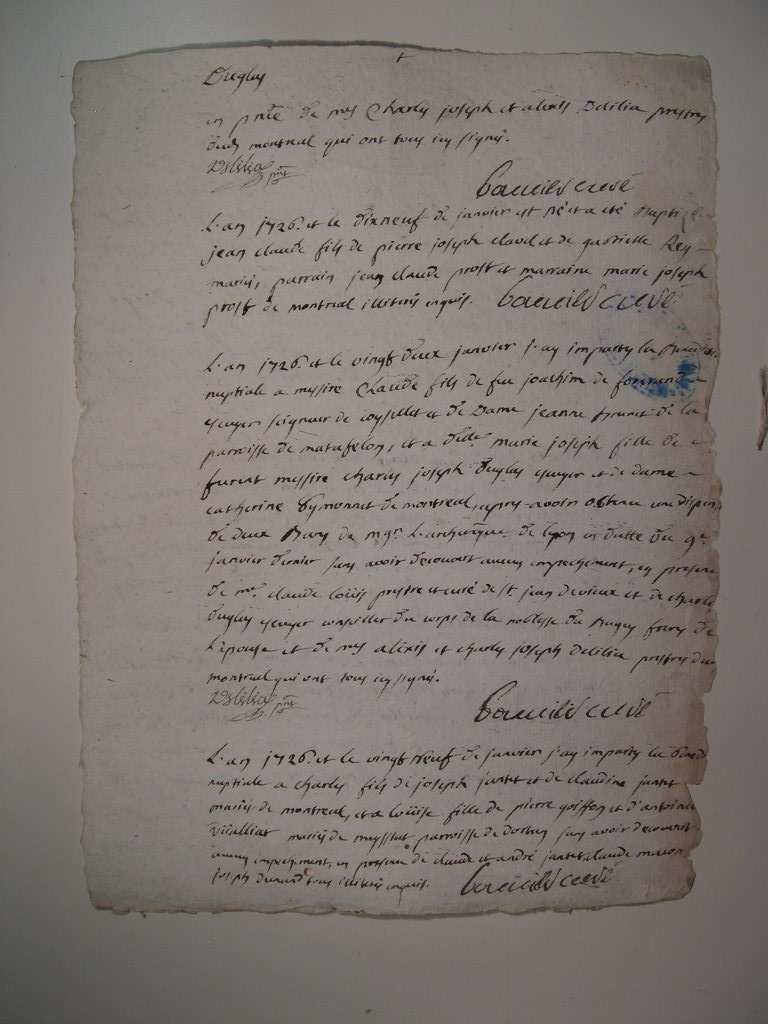 Duglas
en pnce de mrs Charles joseph et alexis Delilia prestres
dud montreal qui ont tous icy signé.
Delilia ptre
curé
L'an 1726 et le dixneuf de janvier est né et a été baptizé
jean claude fils de pierre joseph clavel et de gabrielle Rey
mariés, parrain jean claude prost et marraine marie joseph
prost de montreal illiterés enquis. curé
L'an 1726 et le vingt deux janvier j'ay imparty la
nuptiale a messire Claude fils de feu joachim de
escuyer seigneur de et de Dame jeanne Brunet de la
parroisse de matafelon, et a marie joseph fille de
messire charles joseph Duglas escuyer et de dame
catherine de montreal, apres avoir obtenu une dispense
de deux Bans de mgr L'archevesque de lyon en datte du 9e
janvier dernier sans avoir decouvert aucun empechement, en presence
de mre claude Loüis prestre et curé de st. jean et de charles
Duglas escuyer conseiller du corps de la noblesse du Bugey frere de
L'epouse et de mrs alexis et charles joseph delilia prestres dud
montreal qui ont tous icy signé.
Delilia ptre
curé
L'an 1726 et le vingt neuf de janvier j'ay imparty la
nuptiale a charles fils de joseph jantet et de claudine jantet
mariés de montreal, et a Loüise fille de pierre goiffon et d'antoine
mariés de parroisse de dortan sans avoir decouvert
aucun empechement, en presence de claude et andré jantet, claude
joseph durand tous illiterés enquis. curé